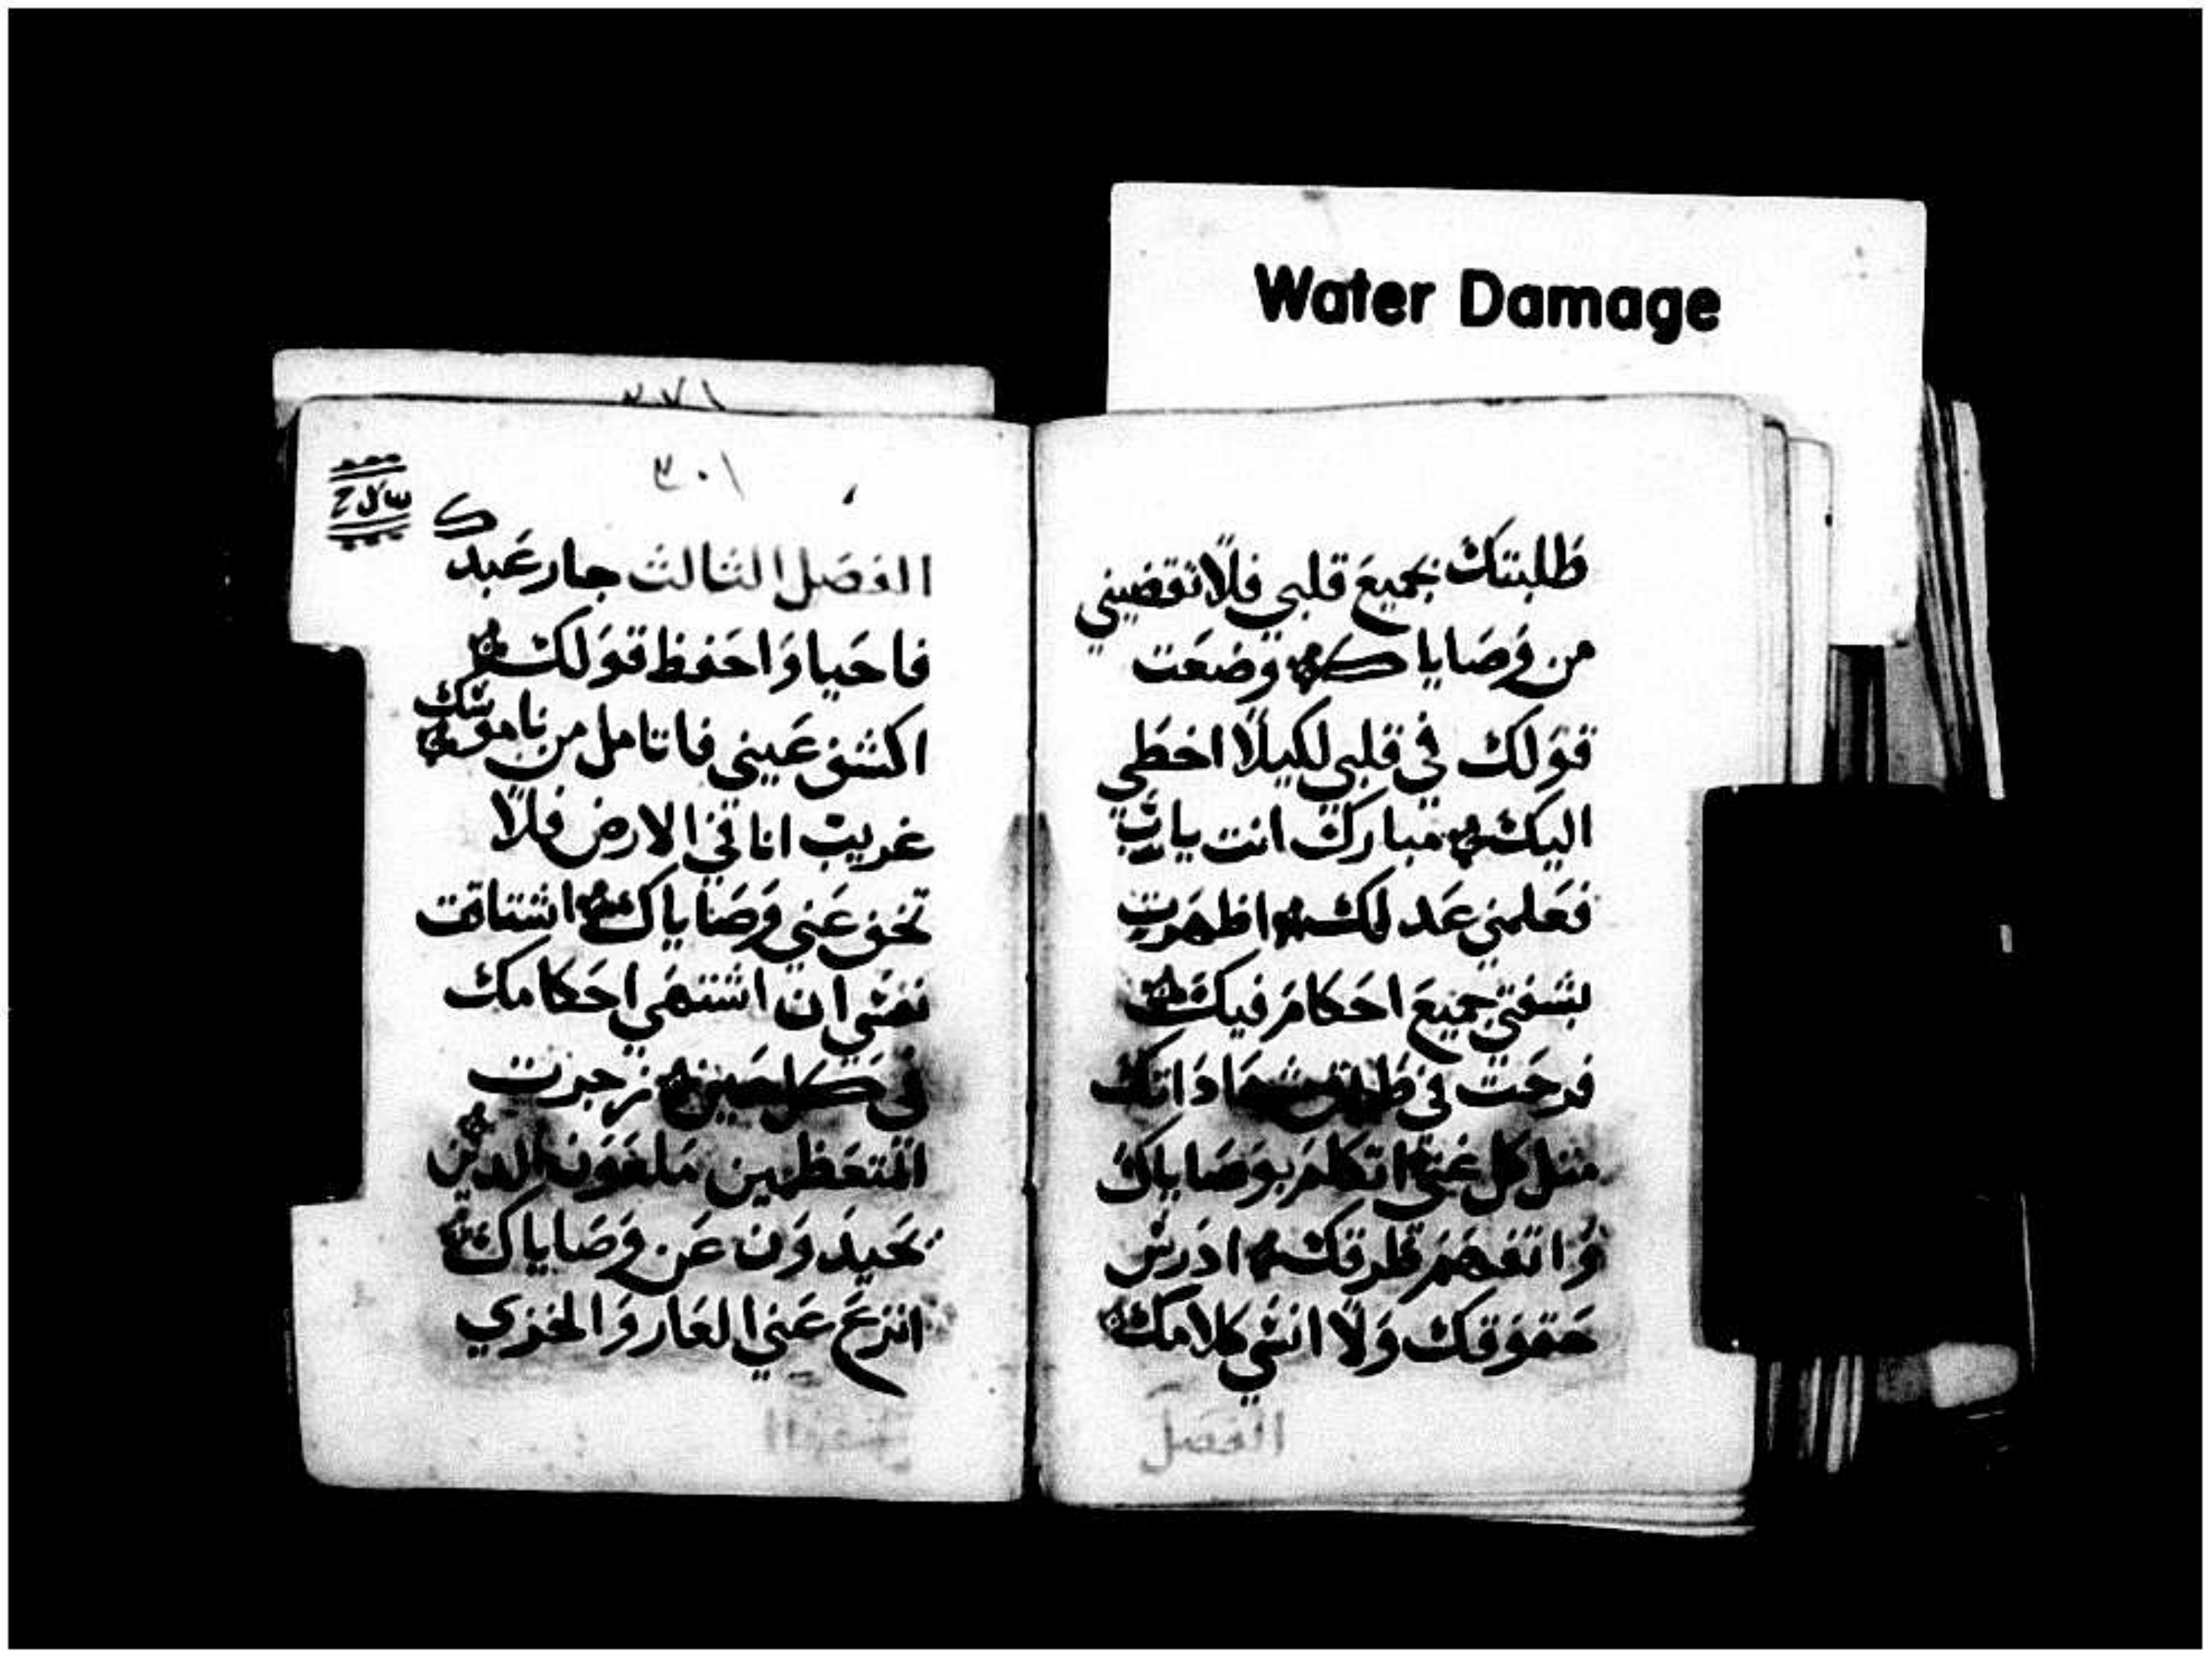 Water Damage
طلبتك بجميع قلبي فلا تقضيني
من وصاياك وضعت
قولك في قلبي لكيلا اخطي
اليك مبارك انت يارب
فعلمني عدلك اظهرت
بشفتي جميع احكام فيك
فرحت في طريق شهاداتك
مثل كل غني اتكلم بوصاياك
واتفهم طرقك ادرس
حقوقك ولا انسي كلامك
الفصل
٣٠١
الفصل الثالث جار عبدك
فاحيا واحفظ قولك
اكشف عيني فاتامل من ناموسك
غريب انا في الارض فلا
تخف عني وصاياك اشتاقت
نفسي ان اشتهي احكامك
في كل حين زجرت
المتعظمين ملعون الدين
يحيدون عن وصاياك
انزع عني العار والخزي